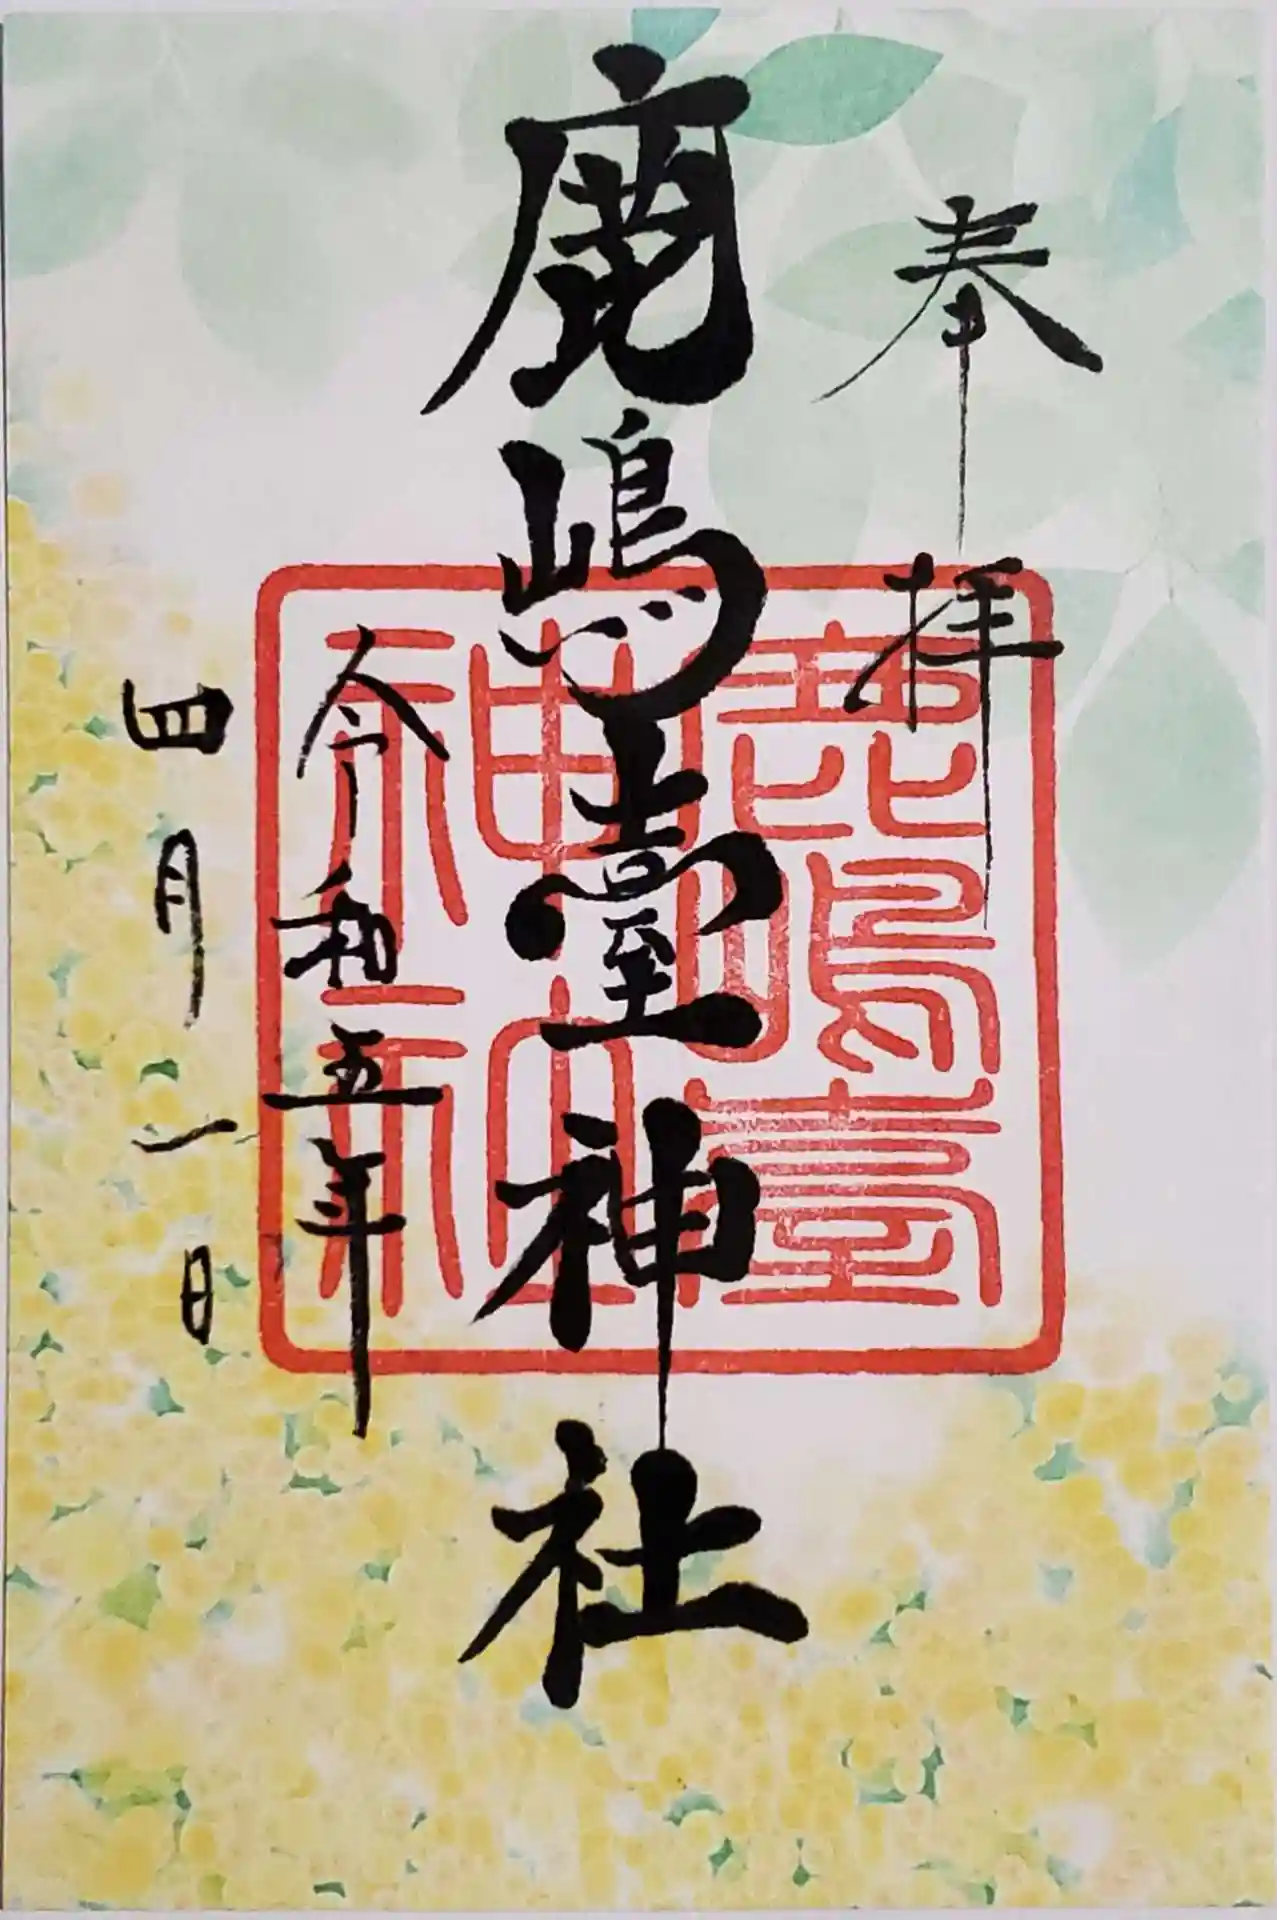 奉拝
鹿嶋臺神社
鹿嶋臺
神社
令和五年
四月一日